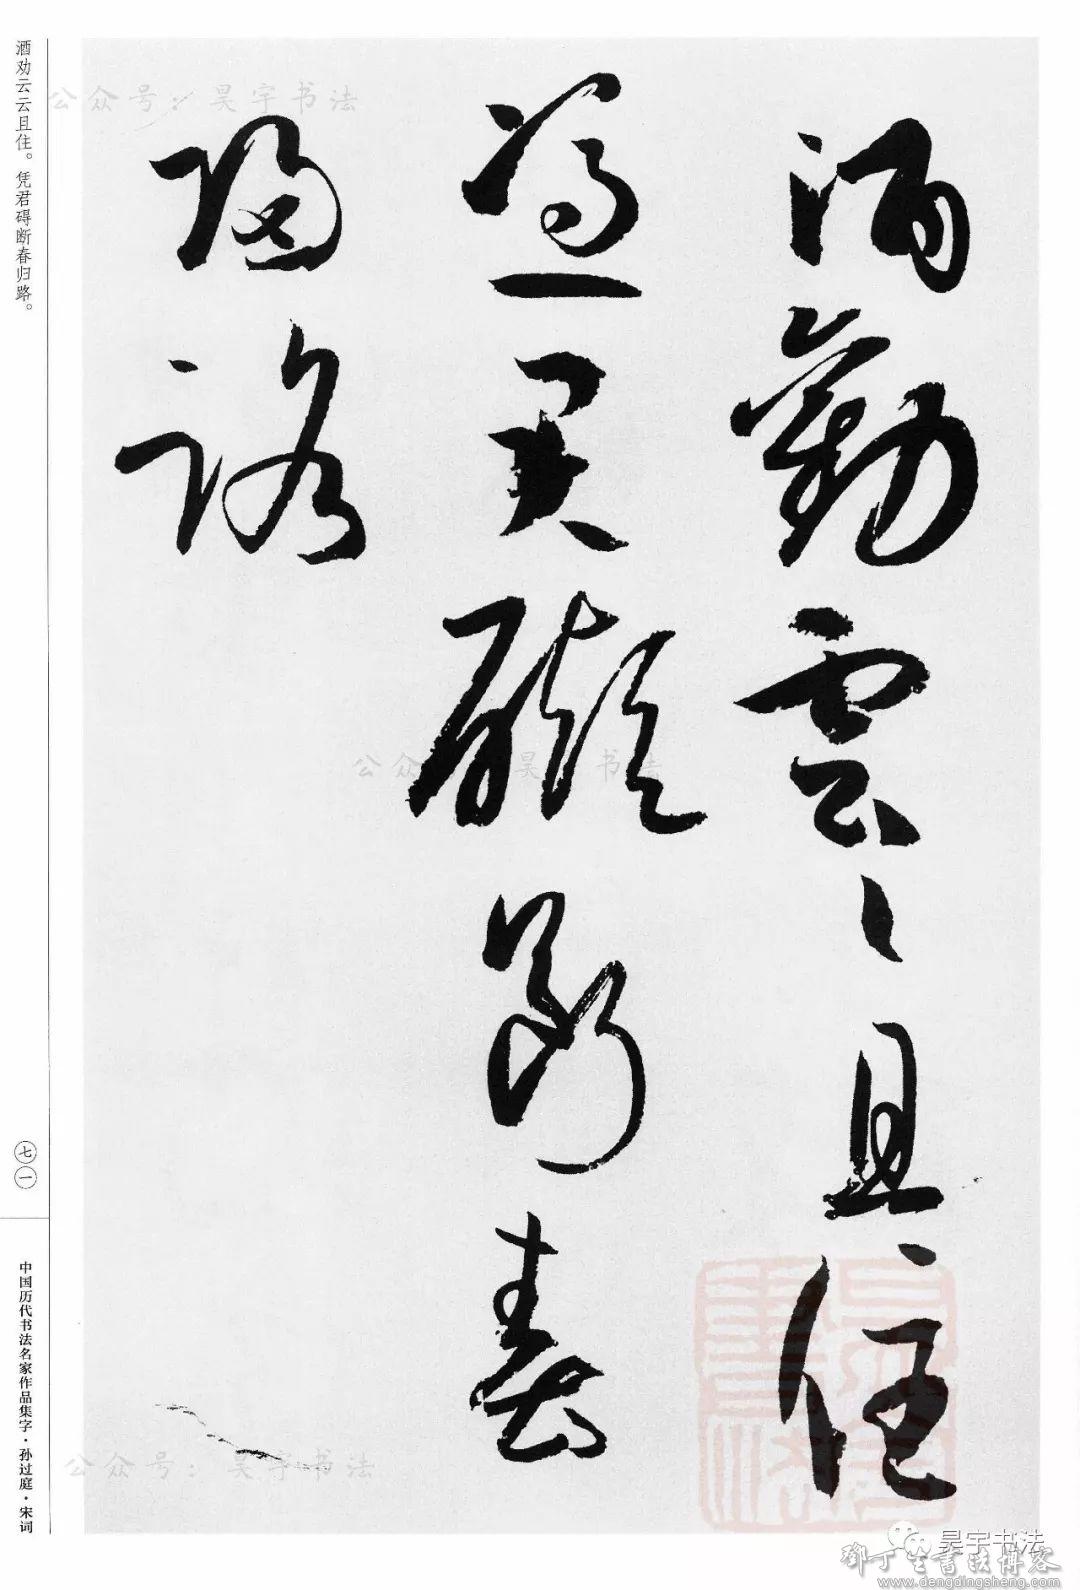 酒勸雲〻且住
憑君礙斷春
歸路
酒劝云云且住。凭君碍断春归路。
七一
中国历代书法名家作品集字·孙过庭·宋词
公众号：昊宇书法
公众号：昊宇书法
公众号：昊宇书法
昊宇书法
鄧丁生書法博客
www.dengdingsheng.com